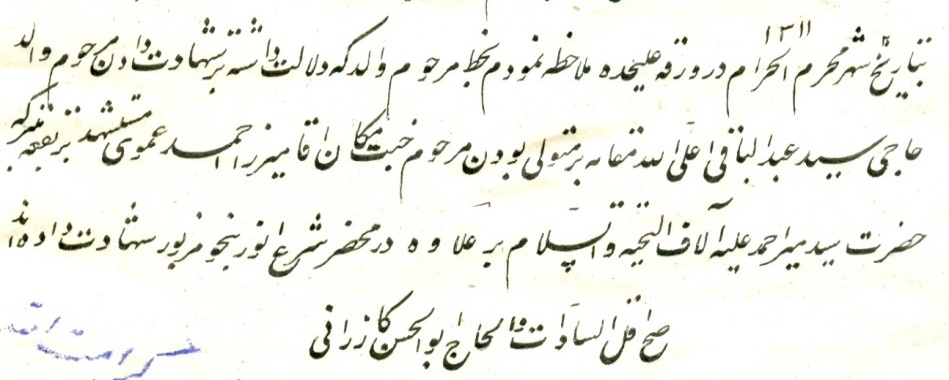 ۱۳۱۱
بتاریخ شهر محرم الحرام در ورقه علیحده ملاحظه نمودم بخط مرحوم والد که دلالت داشته بر شهادت دادن مرحوم والد
حاجی سید عبدالباقی اعلی الله مقامه بر متولی بودن مرحوم جنت مکان اقا میرزا احمد عموی مستشهد بر بقعه متبرکه
حضرت سید میر احمد علیه آلاف التحیه والسلام بر علاوه در محضر شرع انور بنحو مزبور شهادت داده اند
صح اقل السادات والحاج ابوالحسن کازرانی